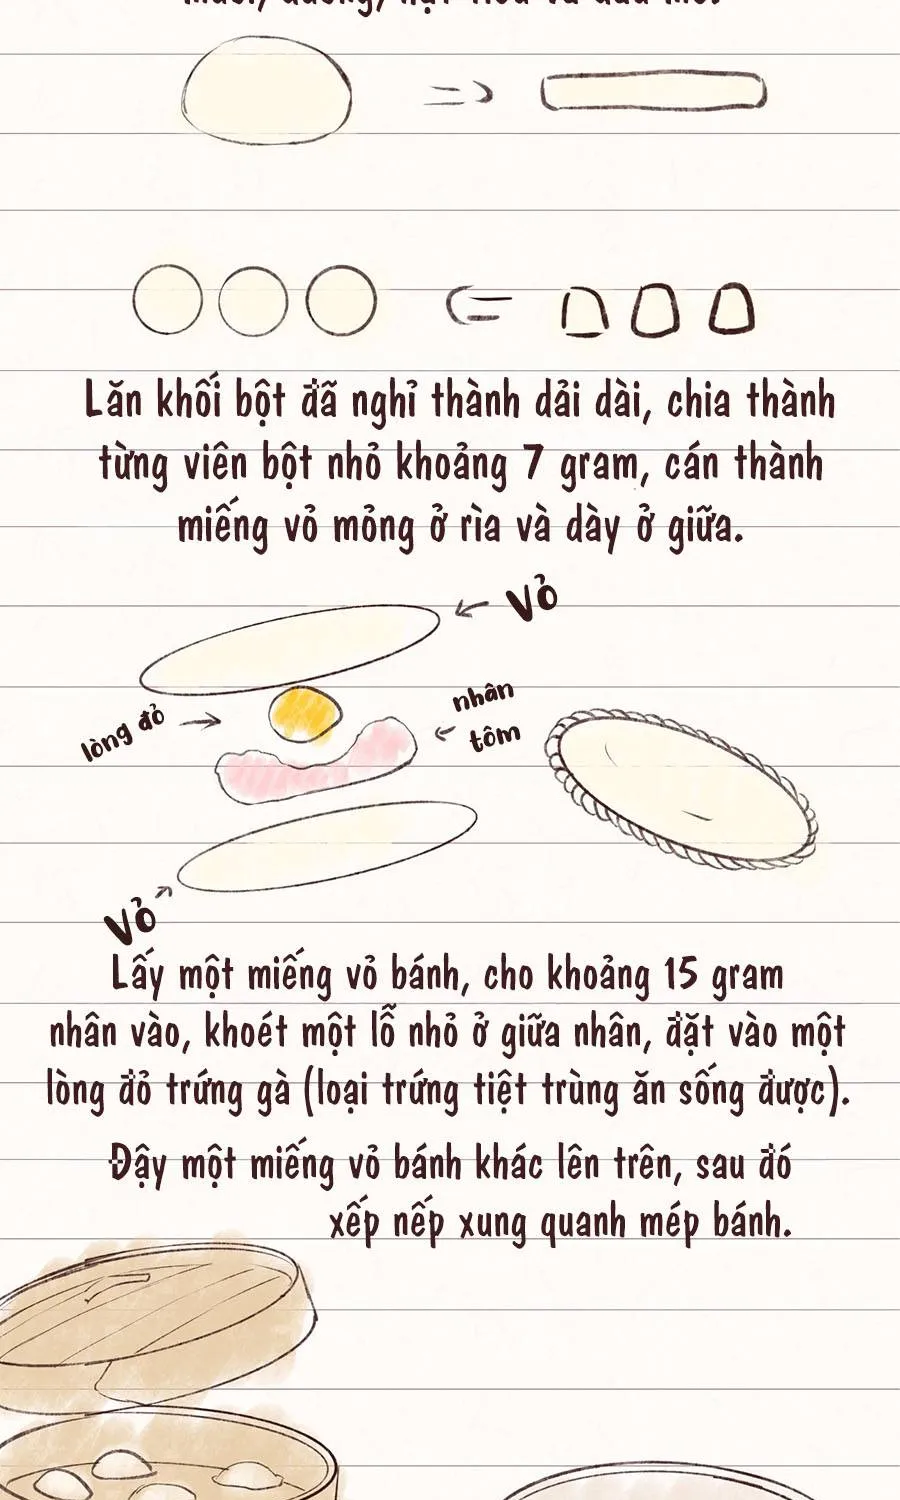 Lăn khối bột đã nghỉ thành dải dài, chia thành
từng viên bột nhỏ khoảng 7 gram, cán thành
miếng vỏ mỏng ở rìa và dày ở giữa.
Vỏ
lòng đỏ
nhân
tôm
Vỏ
Lấy một miếng vỏ bánh, cho khoảng 15 gram
nhân vào, khoét một lỗ nhỏ ở giữa nhân, đặt vào một
lòng đỏ trứng gà (loại trứng tiệt trùng ăn sống được).
Đậy một miếng vỏ bánh khác lên trên, sau đó
xếp nếp xung quanh mép bánh.